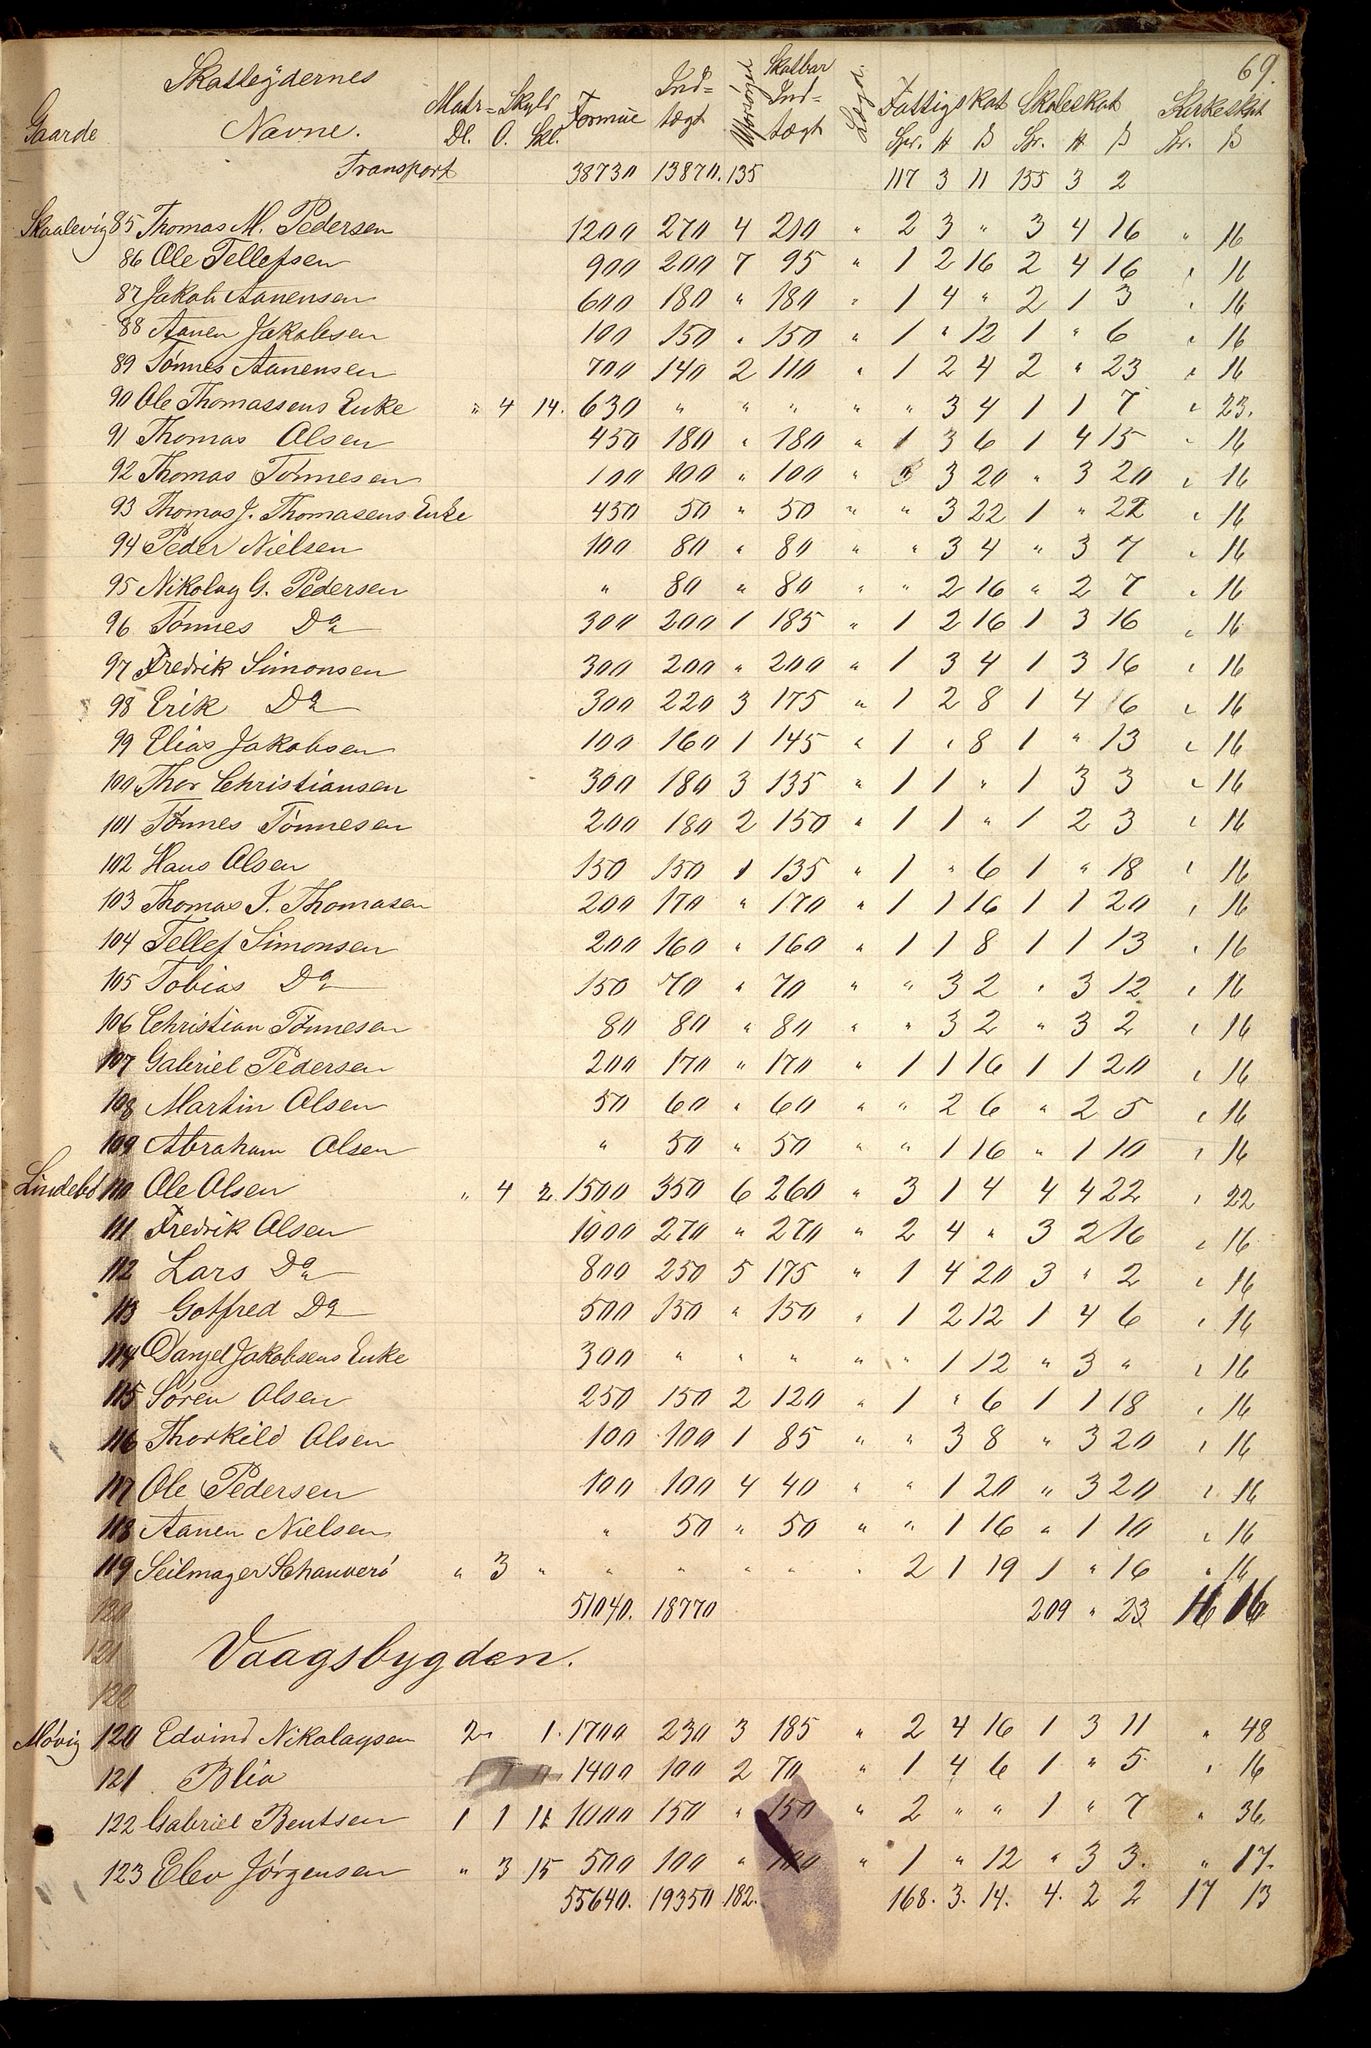 69.
Gaarde Skatteydernes Navne. Matr= Skyld Dl. O. Skl. Formue Ind= tægt Skatbar Ind= tægt Fattigskat Spr. # ß Skoleskat Spr. # ß Kirkeskat Spr. ß
Transport 38730 13870. 135 117 3 11 155 3 2
Skaalevig 85 Thomas M. Pedersen 1200 270 4 210 " 2 3 " 3 4 16 " 16
86 Ole Tellefsen 900 200 7 95 " 1 2 16 2 4 16 " 16
87 Jakob Aanensen 600 180 " 180 " 1 4 " 2 1 3 " 16
88 Aanen Jakobsen 100 150 " 150 " 1 " 12 1 " 6 " 16
89 Tønnes Aanensen 700 140 2 110 " 1 2 4 2 " 23 " 16
90 Ole Thomassens Enke " 4 14. 630 " " " " " 3 4 1 1 7 " 23.
91 Thomas Olsen 450 180 " 180 " 1 3 6 1 4 15 " 16
92 Thomas Tønnesen 100 100 " 100 " " 3 20 " 3 20 " 16
93 Thomas J. Thomasens Enke 450 50 " 50 " " 3 22 1 " 22 " 16
94 Peder Nielsen 100 80 " 80 " " 3 4 " 3 7 " 16
95 Nikolay G. Pedersen " 80 " 80 " " 2 16 " 2 7 " 16
96 Tønnes Do 300 200 1 185 " 1 2 16 1 3 16 " 16
97 Fredrik Simonsen 300 200 " 200 " 1 3 4 1 3 16 " 16
98 Erik Do 300 220 3 175 " 1 2 8 1 4 16 " 16
99 Elias Jakobsen 100 160 1 145 " 1 " 8 1 " 13 " 16
100 Thor Christiansen 300 180 3 135 " 1 1 " 1 3 3 " 16
101 Tønnes Tønnesen 200 180 2 150 " 1 1 " 1 2 3 " 16
102 Hans Olsen 150 150 1 135 " 1 " 6 1 " 18 " 16
103 Thomas T. Thomasen 200 170 " 170 " 1 1 16 1 1 20 " 16
104 Tellef Simonsen 200 160 " 160 " 1 1 8 1 1 13 " 16
105 Tobias Do 150 70 " 70 " " 3 2 " 3 12 " 16
106 Christian Tønnesen 80 80 " 80 " " 3 2 " 3 2 " 16
107 Gabriel Pedersen 200 170 " 170 " 1 1 16 1 1 20 " 16
108 Martin Olsen 50 60 " 60 " " 2 6 " 2 5 " 16
109 Abraham Olsen " 50 " 50 " " 1 16 " 1 10 " 16
Lindebø 110 Ole Olsen " 4 2. 1500 350 6 260 " 3 1 4 4 4 22 " 22
111 Fredrik Olsen 1000 270 " 270 " 2 4 " 3 2 16 " 16
112 Lars Do 800 250 5 175 " 1 4 20 3 " 2 " 16
113 Gotfred Do 500 150 " 150 " 1 2 12 1 4 6 " 16
114 Danjel Jakobsens Enke 300 " " " " " 1 12 " 3 " " 16
115 Søren Olsen 250 150 2 120 " 1 " 6 1 1 18 " 16
116 Thorkild Olsen 100 100 1 85 " " 3 8 " 3 20 " 16
117 Ole Pedersen 100 100 4 40 " " 1 20 " 3 20 " 16
118 Aanen Nielsen " 50 " 50 " " 1 16 " 1 10 " 16
119 Seilmager Schauverø " 3 " " " " " " 2 1 19 1 " 16 " 16
120 51040. 18770 209 " 23 16 16
121 Vaagsbygden.
122
Møvig 120 Edvind Nikolaysen 2 1. 1700 230 3 185 " 2 4 16 1 3 11 " 48
121 Blia 1400 100 2 70 " 1 4 6 1 " 5 " 16
122 Gabriel Bentsen 1 1 11 1000 150 " 150 " 2 " " 1 " 7 " 36.
123 Elev Jørgensen " 3 15 500 100 " 100 " 1 " 12 " 3 3. " 17.
55640. 19350 182. 168. 3. 14. 4. 2 2 17 13